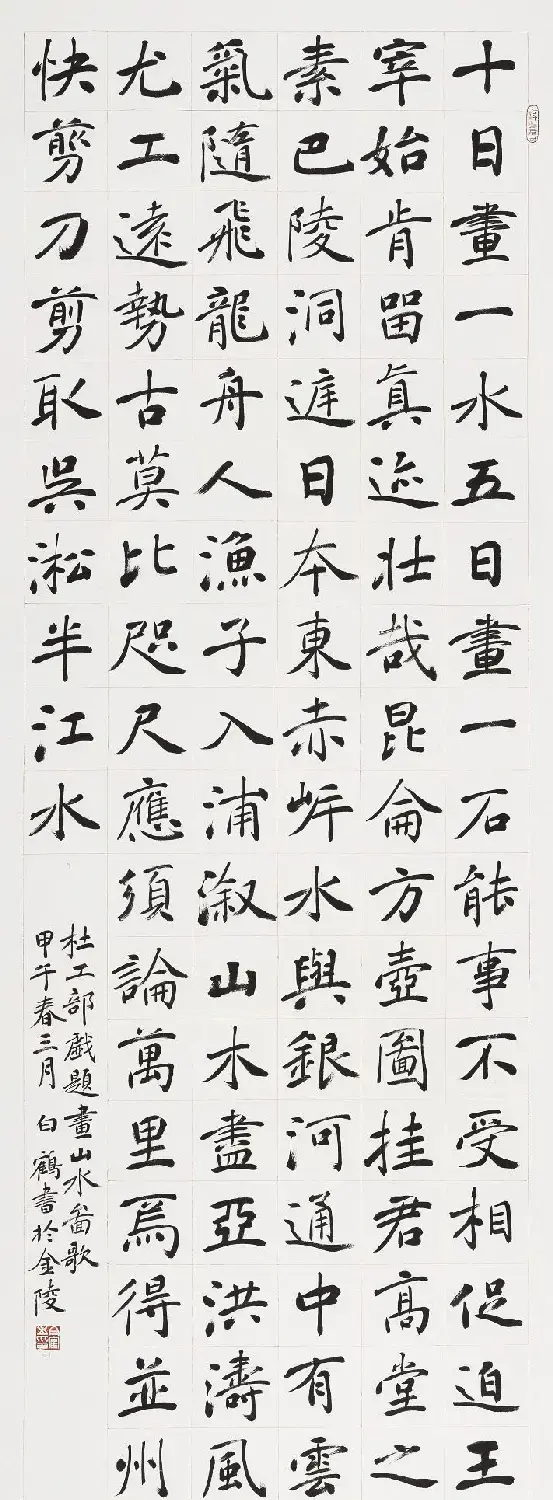 十日畫一水五日畫一石能事不受相促迫王
宰始肯留眞迹壯哉昆侖方壺圖挂君高堂之
素巴陵洞庭日本東赤岸水與銀河通中有雲
氣隨飛龍舟人漁子入浦溆山木盡亞洪濤風
尤工遠勢古莫比咫尺應須論萬里焉得並州
快翦刀剪取吳淞半江水
杜工部戲題畫山水啚歌
甲午春三月 白鶴書於金陵